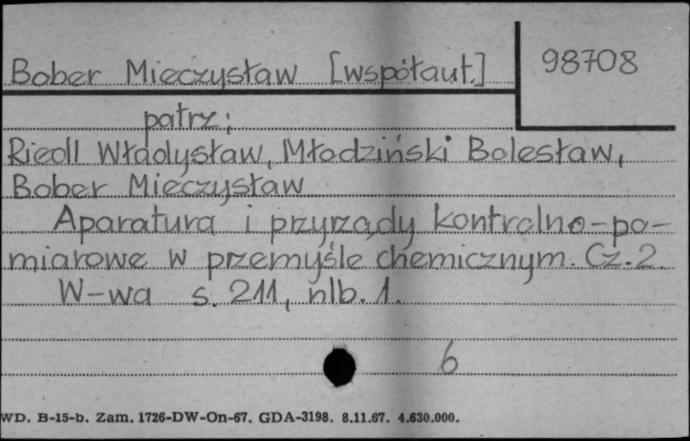 Bober Mieczysław [współaut.]
98708
patrz:
Riedl Władysław, Młodziński Bolesław,
Bober Mieczysław
Aparatura i przyrządy kontrolno-po-
miarowe w przemyśle chemicznym. Cz. 2.
W-wa s. 211, nlb. 1.
6
WD. B-15-b. Zam. 1726-DW-On-67. GDA-3198. 8.11.67. 4.630.000.